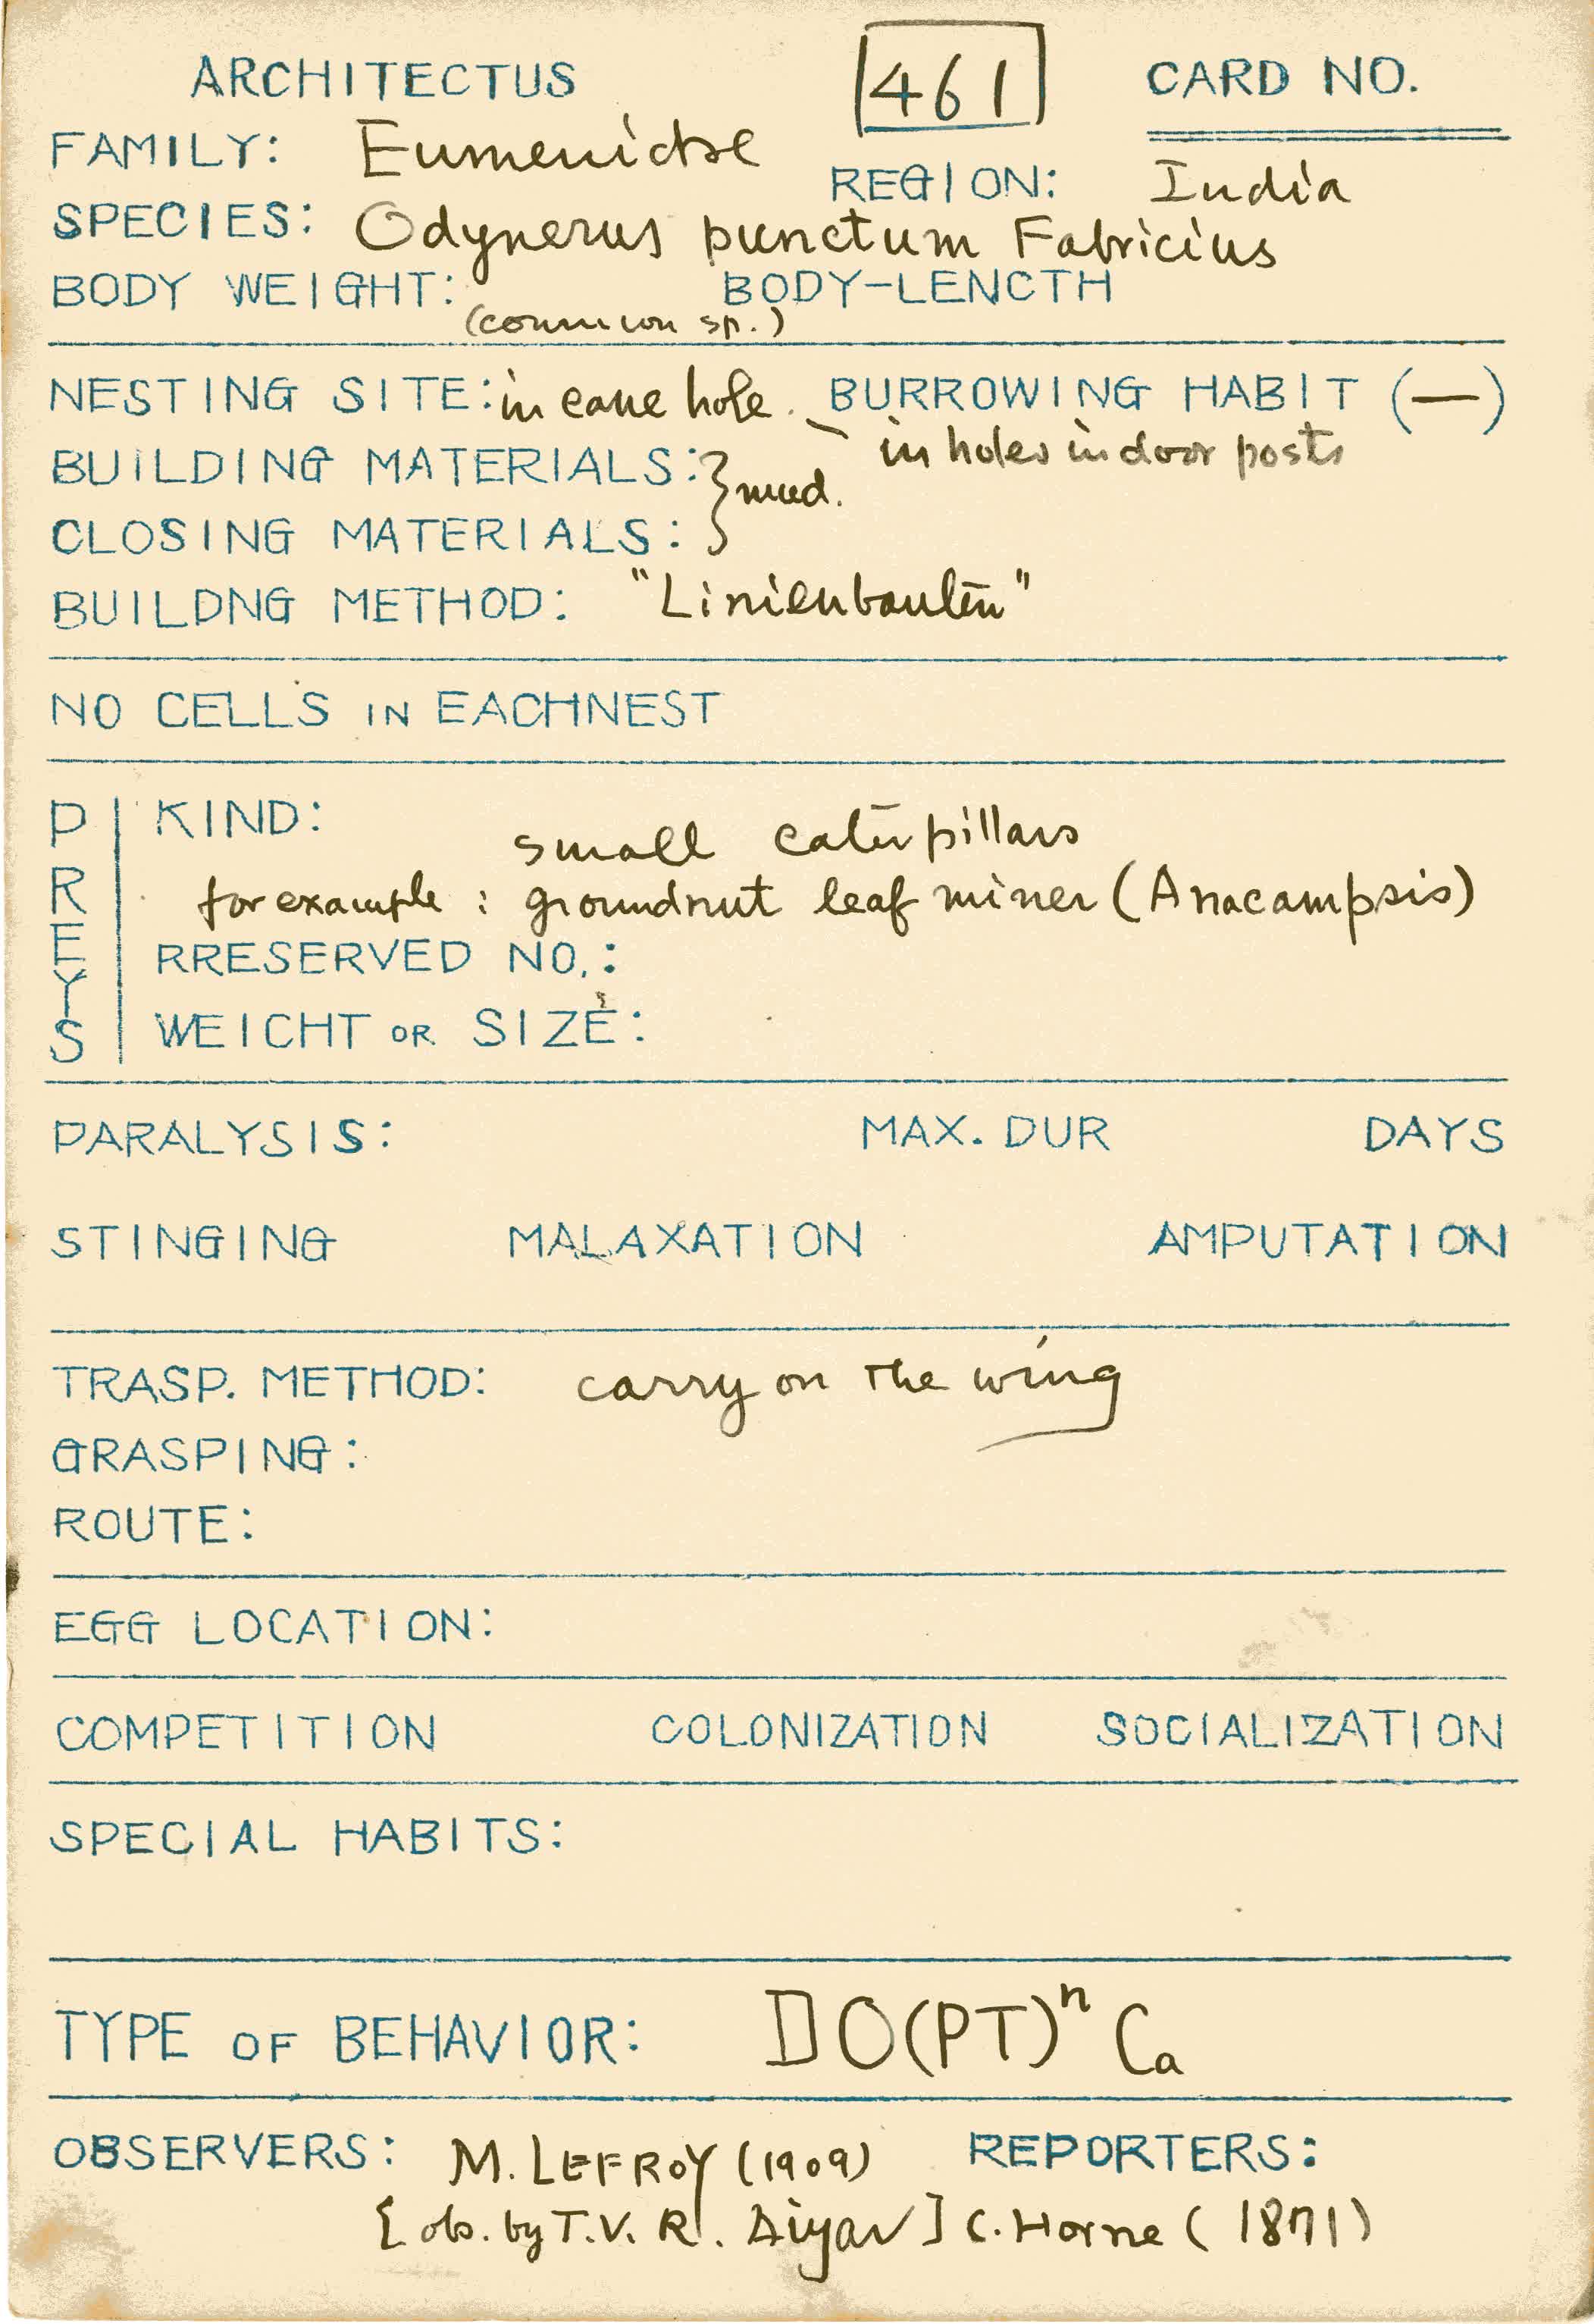 ARCHITECTUS 461 CARD NO.
FAMILY: Eumenidae
REGION: India
SPECIES: Odynerus punctum Fabricius
BODY WEIGHT: BODY-LENCTH
(common sp.)
NESTING SITE: in cane hole. BURROWING HABIT (—)
in holes in door posts
BUILDING MATERIALS: } mud.
CLOSING MATERIALS:
BUILDNG METHOD: "Linienbauten"
NO CELLS IN EACHNEST
PREYS
KIND: small caterpillars
for example : groundnut leaf miner (Anacampsis)
RRESERVED NO.:
WEICHT OR SIZE:
PARALYSIS: MAX. DUR DAYS
STINGING MALAXATION AMPUTATION
TRASP. METHOD: carry on the wing
GRASPING:
ROUTE:
EGG LOCATION:
COMPETITION COLONIZATION SOCIALIZATION
SPECIAL HABITS:
TYPE OF BEHAVIOR: IO(PT)ⁿ Ca
OBSERVERS: M. LEFROY (1909) REPORTERS:
[ob. by T.V.R. Aiyar] C. Horne (1871)